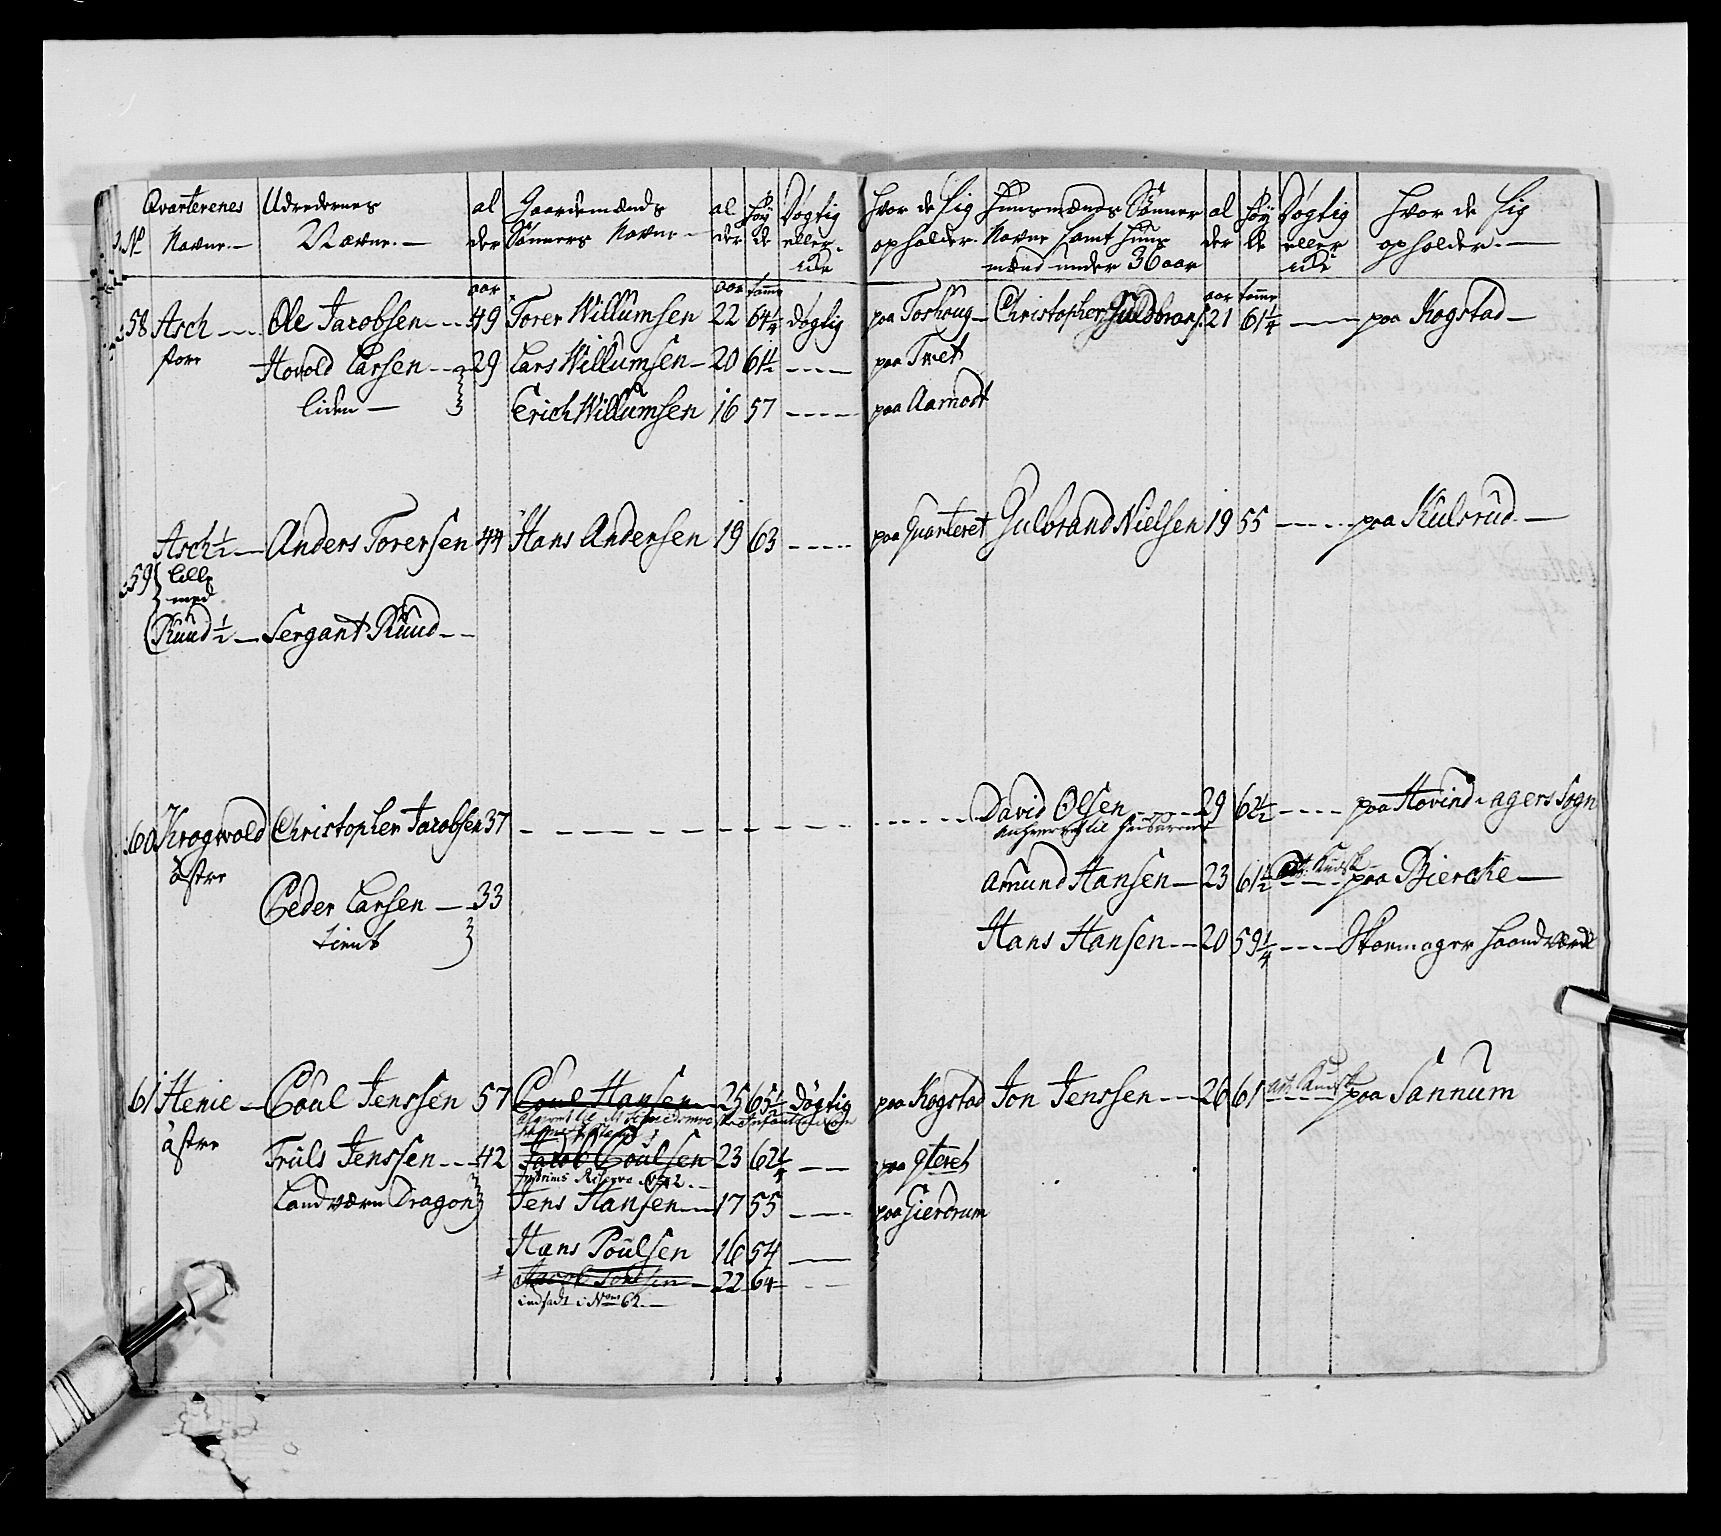 No Qvarterenes Navne.— Udredernes Navne.— al der Gaardemænds Sönners Navne— al der Höy de Dögtig eller Ikke Hvor de sig opholder. Huusmænds Sönner Navne samt Huus mænd under 36 aar al der Höy de Dögtig eller ikke Hvor de sig opholder.—
aar aar tomme aar tomme
58 Asch — Ole Jacobsen — 49 Torer Willumsen 22 64 1/4 dögtig paa Toshoug — Christopher Guldbrans: 21 61 1/4 — paa Kogstad —
store Hovold Larsen — 29 Lars Willumsen — 20 61 1/2 — paa Tvet
liden — Erich Willumsen 16 57 — paa Aamodt
Asch 1/2 — Anders Torersen 44 Hans Andersen 19 63 — paa Quarteret Gulbrand Nielsen 19 55 — paa Kulsrud —
59 lille
med
Ruud 1/2 — Sergant Ruud —
60 Krogvold Christopher Jacobsen 37 — David Olsen — 29 62 1/2 — paa Hovind i agers Sogn
östre
Amund Hansen — 23 61 1/2 — paa Biercke —
Peder Larsen — 33
Hans Hansen — 20 59 1/4 — Skoemager haandværk
tient
61 Henie — Poul Jenssen 57 Poul Hansen 25 65 1/2 Dögtig paa Kogstad Jon Jenssen — 26 61 — paa Sannum
östre Truls Jenssen — 42 Jacob Poulsen 23 62 1/4 — paa qteret
Landværn Dragon Jens Hansen — 17 55 — paa Gierdrum
Hans Poulsen 16 54 —
22 64 —
indsadt i No 62.—